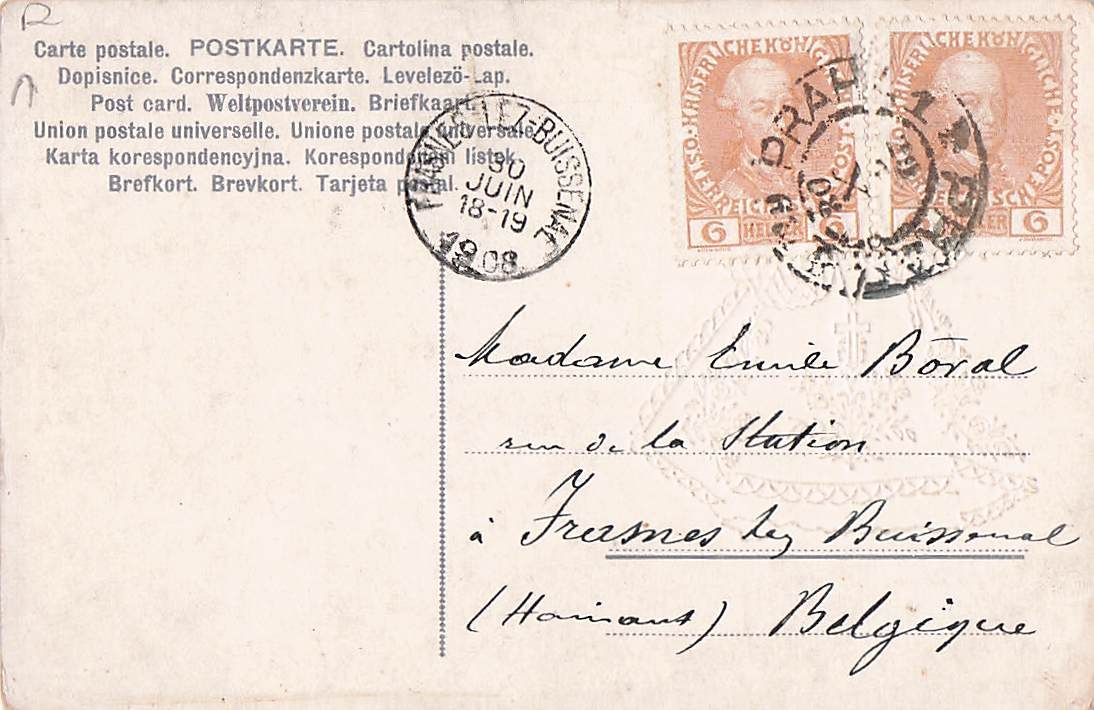 Carte postale. POSTKARTE. Cartolina postale.
Dopisnice. Correspondenzkarte. Levelező-Lap.
Post card. Weltpostverein. Briefkaart.
Union postale universelle. Unione postale universale
Karta korespondencyjna. Korespondenční listek.
Brefkort. Brevkort. Tarjeta postal.
FRASNES-LEZ-BUISSENAL
30
JUIN
18-19
1908
KAISERLICHE KÖNIGLICHE ÖSTERREICHISCHE POST
6 HELLER 6
KAISERLICHE KÖNIGLICHE ÖSTERREICHISCHE POST
6 HELLER 6
PRAHA 1 ★ PRAG
Madame Emile Bōval
rue de la Station
à Frasnes lez Buissenal
(Hainaut) Belgique